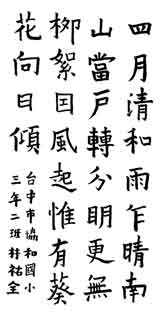 四月清和雨乍晴南
山當戶轉分明更無
柳絮因風起惟有葵
花向日傾
台中市協和國小
三年二班林祐全